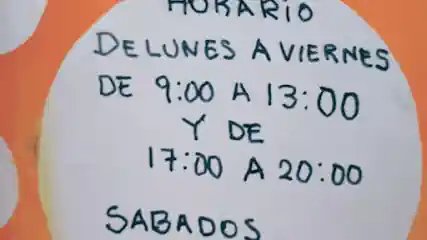 HORARIO
DE LUNES A VIERNES
DE 9:00 A 13:00
Y DE
17:00 A 20:00
SABADOS